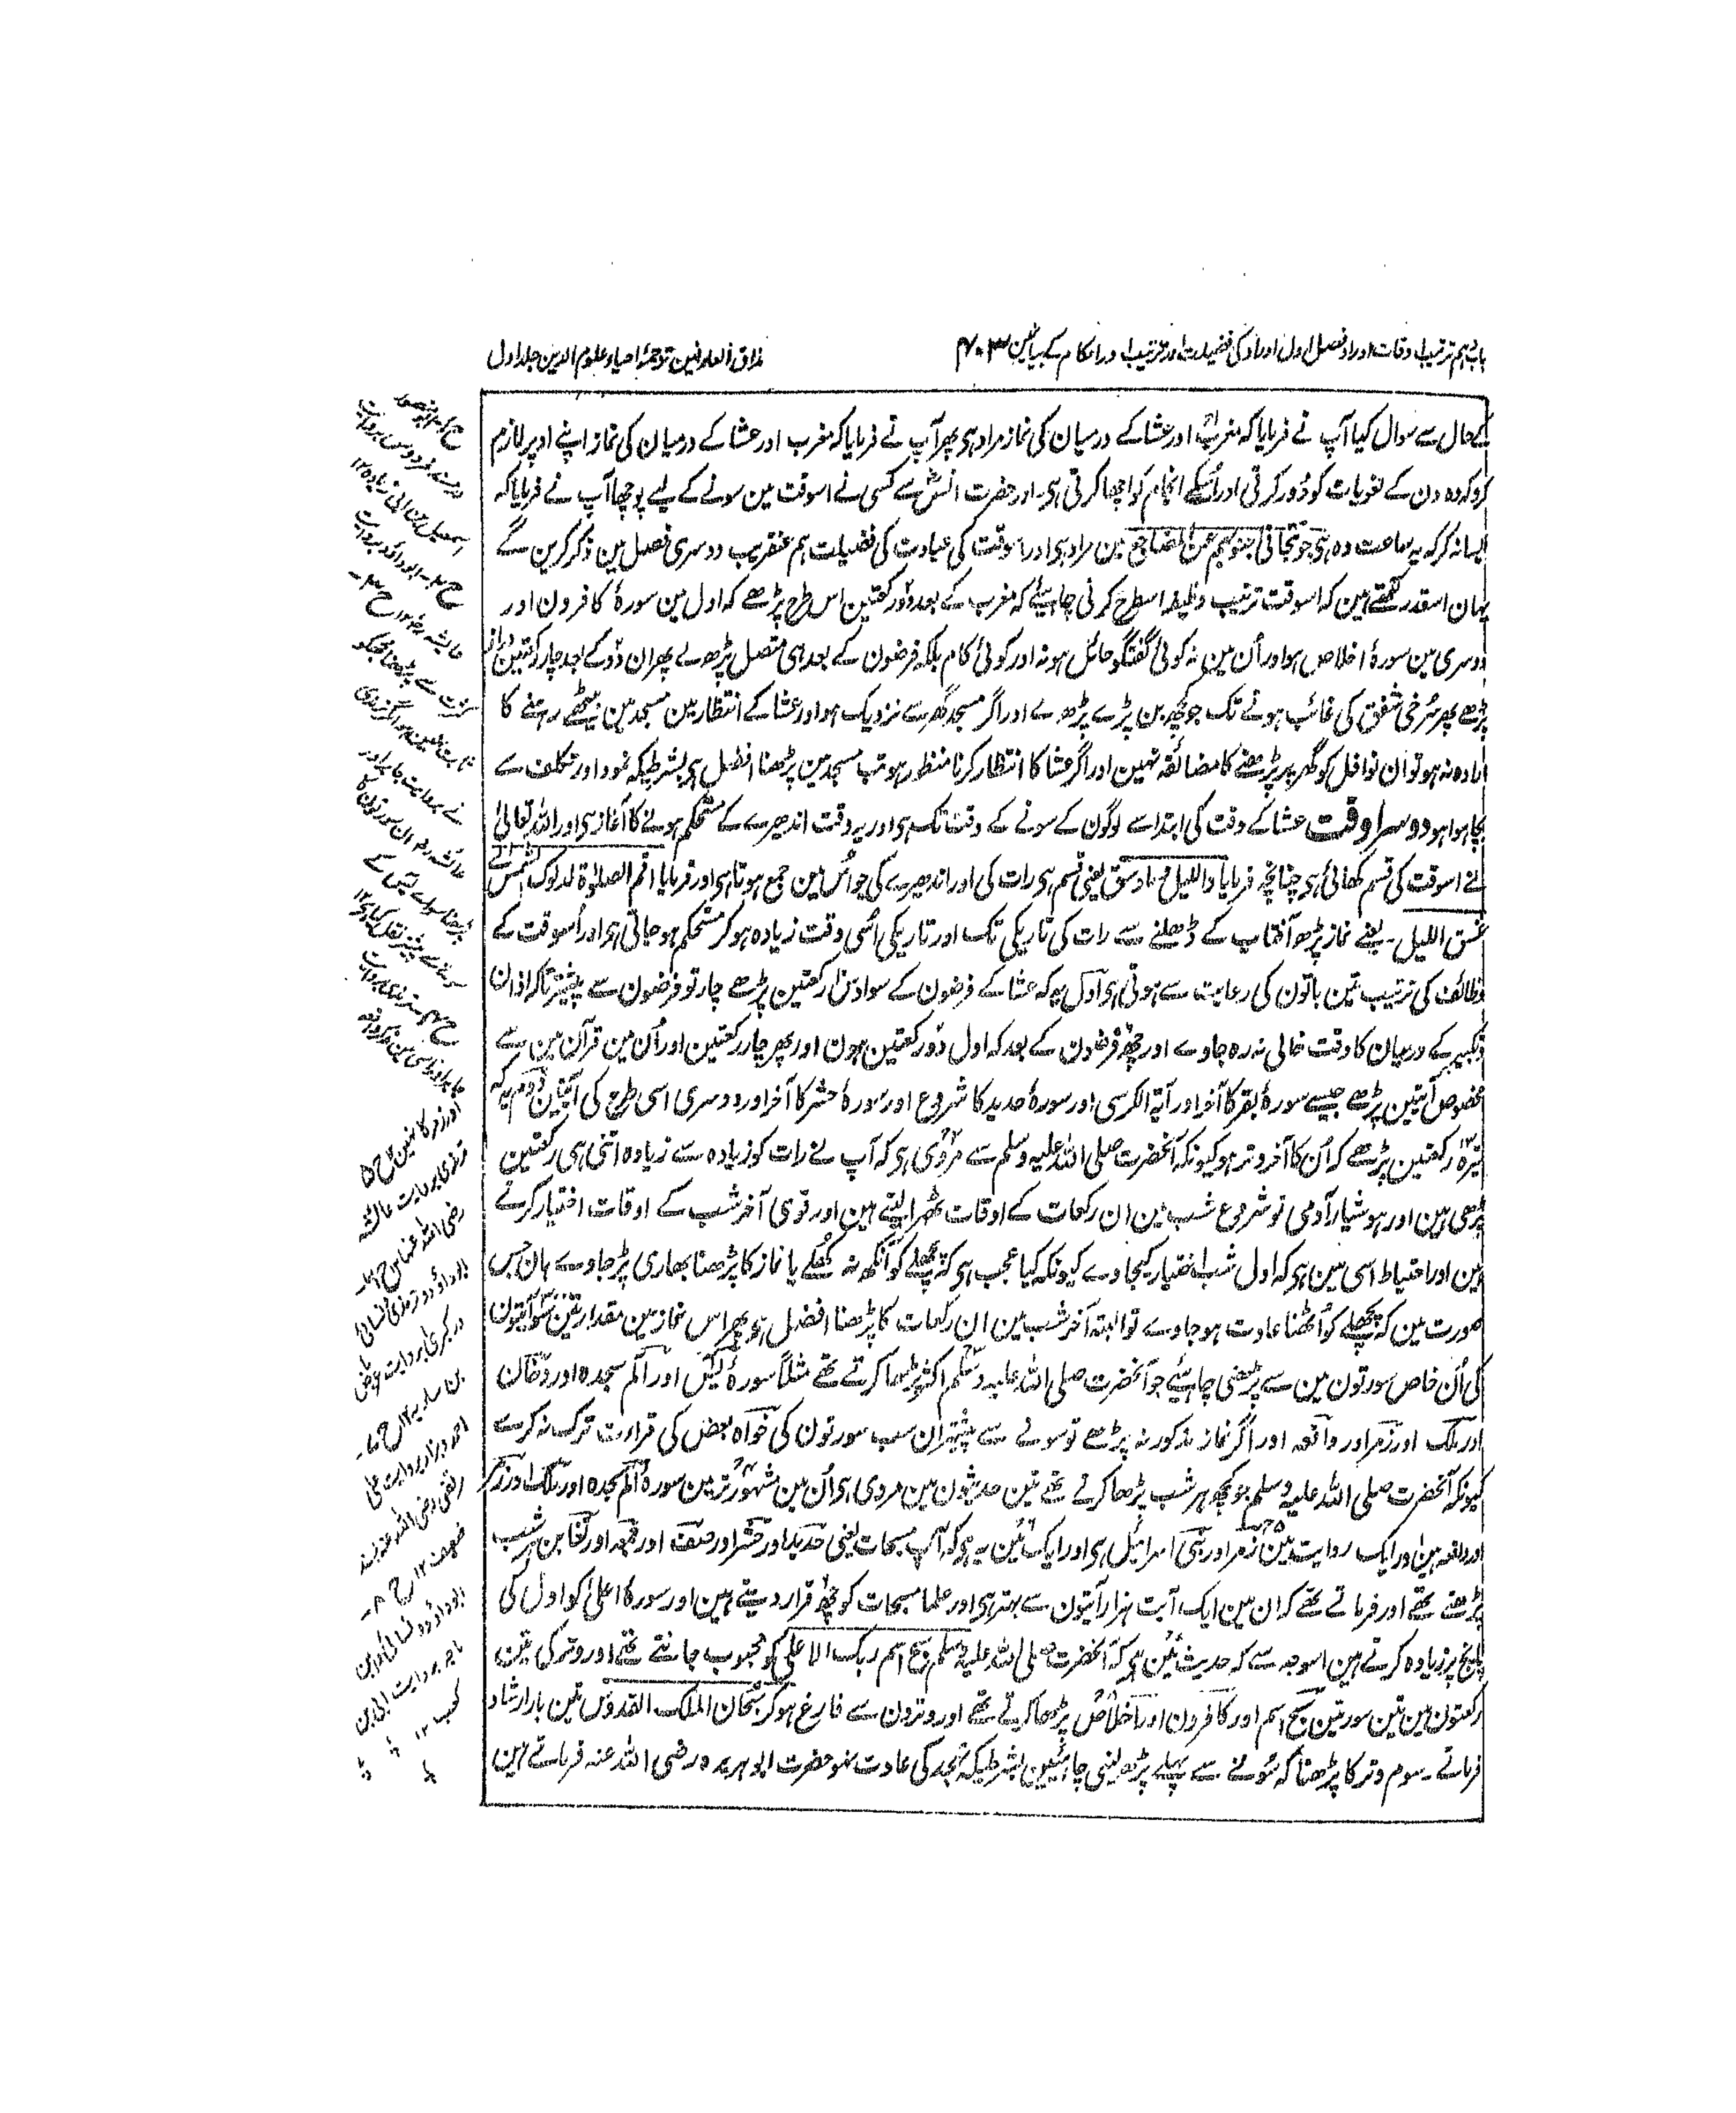 باب دہم ترتیب اوقات اوراد فصل اول اوراد کی فضیلت اور ترتیب اور احکام کے بیان مین ۴۰۳
مذاق العارفین ترجمۂ احیاء علوم الدین جلد اول
کے حال سے سوال کیا آپ نے فرمایا کہ مغرب اور عشا کے درمیان کی نماز مراد ہی پھر آپ نے فرمایا کہ مغرب اور عشا کے درمیان کی نماز اپنے اوپر لازم
کرو کہ وہ دن کے لغویات کو دُور کرتی اور اُسکے انجام کو اچھا کرتی ہی۔ اور حضرت انسؓ سے کسی نے اسوقت مین سونے کے لیے پوچھا آپ نے فرمایا کہ
ایسا نہ کر کہ یہ ساعت وہ ہی جو تتجافی جنوبہم عن المضاجع مین مراد ہی اور اسوقت کی عبادت کی فضیلت ہم عنقریب دوسری فصل مین ذکر کرین گے
یہان اسقدر لکھتے ہین کہ اسوقت ترتیب وظیفہ اسطرح کرنی چاہیئے کہ مغرب کے بعد دو رکعتین اس طرح پڑھے کہ اول مین سورۂ کافرون اور
دوسری مین سورۂ اخلاص ہو اور اُن مین نہ کوئی گفتگو حائل ہو نہ اور کوئی کام بلکہ فرضون کے بعد ہی متصل پڑھ لے پھر ان دو کے بعد چار رکعتین دراز
پڑھے پھر سُرخی شفق کی غائب ہونے تک جو کچھ بن پڑے پڑھے اور اگر مسجد گھر سے نزدیک ہو اور عشا کے انتظار مین مسجد مین بیٹھے رہنے کا
ارادہ نہ ہو تو ان نوافل کو گھر پر پڑھنے کا مضائقہ نہین اور اگر عشا کا انتظار کرنا منظور ہو تب مسجد مین پڑھنا افضل ہی بشرطیکہ نمود اور تکلف سے
بچا ہوا ہو دوسرا وقت عشا کے وقت کی ابتدا سے لوگون کے سونے کے وقت تک ہی اور یہ وقت اندھیرے کے مستحکم ہونے کا آغاز ہی اور اللہ تعالیٰ
نے اسوقت کی قسم کھائی ہی چنانچہ فرمایا واللیل وما وسق یعنی قسم ہی رات کی اور اندھیرے کی جو اُس مین جمع ہوتا ہی اور فرمایا اقم الصلوٰۃ لدلوک الشمس الی
غسق اللیل۔ یعنے نماز پڑھ آفتاب کے ڈھلنے سے رات کی تاریکی تک اور تاریکی اُسی وقت زیادہ ہو کر مستحکم ہو جاتی ہی اور اُسوقت کے
وظائف کی ترتیب تین باتون کی رعایت سے ہوتی ہی اول یہ کہ عشا کے فرضون کے سوا دس رکعتین پڑھے چار تو فرضون سے پیشتر تاکہ اذان
وتکبیر کے درمیان کا وقت خالی نہ رہ جاوے اور چھ فرضون کے بعد کہ اول دو رکعتین ہون اور پھر چار رکعتین اور اُن مین قرآن مین سے
مخصوص آیتین پڑھے جیسے سورۂ بقر کا آخر اور آیۃ الکرسی اور سورۂ حدید کا شروع اور سورۂ حشر کا آخر اور دوسری اسی طرح کی آیتین دوم یہ کہ
تیرہ رکعتین پڑھے کہ اُن کا آخر وتر ہو کیونکہ آنحضرت صلی اللہ علیہ وسلم سے مروی ہی کہ آپ نے رات کو زیادہ سے زیادہ اتنی ہی رکعتین
پڑھی ہین اور ہوشیار آدمی تو شروع شب مین ان رکعات کے اوقات ٹھہرا لیتے ہین اور قوی آخر شب کے اوقات اختیار کرتے
ہین اور احتیاط اسی مین ہی کہ اول شب اختیار کیجاوے کیونکہ کیا عجب ہی کہ پچھلے کو آنکھ نہ کھلے یا نماز کا پڑھنا بھاری پڑ جاوے ہان جس
صورت مین کہ پچھلے کو اُٹھنا عادت ہو جاوے تو البتہ آخر شب مین ان رکعات کا پڑھنا افضل ہی پھر اس نماز مین مقدار تین سو آیتون
کی اُن خاص سورتون مین سے پڑھنی چاہیئے جو آنحضرت صلی اللہ علیہ وسلم اکثر پڑھا کرتے تھے مثلاً سورۂ یٰس اور الم سجدہ اور دخان
اور ملک اور زمر اور واقعہ اور اگر نماز مذکور نہ پڑھے تو سونے سے پیشتر ان سب سورتون کی خواہ بعض کی قراءت ترک نہ کرے
کیونکہ آنحضرت صلی اللہ علیہ وسلم جو کچھ ہر شب پڑھا کرتے تھے تین حدیثون مین مروی ہی اُن مین مشہور تر مین سورۂ الم سجدہ اور ملک اور زمر
اور واقعہ ہین اور ایک روایت مین زمر اور بنی اسرائیل ہی اور ایک مین یہ ہی کہ آپ مسبحات یعنی حدید اور حشر اور صف اور جمعہ اور تغابن ہر شب
پڑھتے تھے اور فرماتے تھے کہ ان مین ایک آیت ہزار آیتون سے بہتر ہی اور علما مسبحات کو چھ قرار دیتے ہین اور سورۂ اعلیٰ کو اول کی
پانچ پر زیادہ کرتے ہین اسوجہ سے کہ حدیث مین ہی کہ آنحضرت صلی اللہ علیہ وسلم سبح اسم ربک الاعلی کو محبوب جانتے تھے اور وتر کی تین
رکعتون مین تین سورتین سبح اسم اور کافرون اور اخلاص پڑھا کرتے تھے اور وترون سے فارغ ہو کر سبحان الملک القدوس تین بار ارشاد
فرماتے۔ سوم وتر کا پڑھنا کہ سونے سے پہلے پڑھ لینی چاہئیین بشرطیکہ تہجد کی عادت نہو حضرت ابو ہریرہ رضی اللہ عنہ فرماتے ہین
اسمعیل بن ابی زیاد ۱۲
ح ۲۔ ابوداؤد بروایت
ترمذی بروایت عائشہ
رضی اللہ عنہا
ابوداؤد و ترمذی و نسائی
در کبریٰ بروایت عرباض
بن ساریہ ۱۲ ح ۷۔
احمد و بزار بروایت علی
مرتضی رضی اللہ عنہ بسند
ضعیف ۱۲ ح ۸۔
ابوداؤد و نسائی و ابن
ماجہ بروایت ابی بن
کعب ۱۲